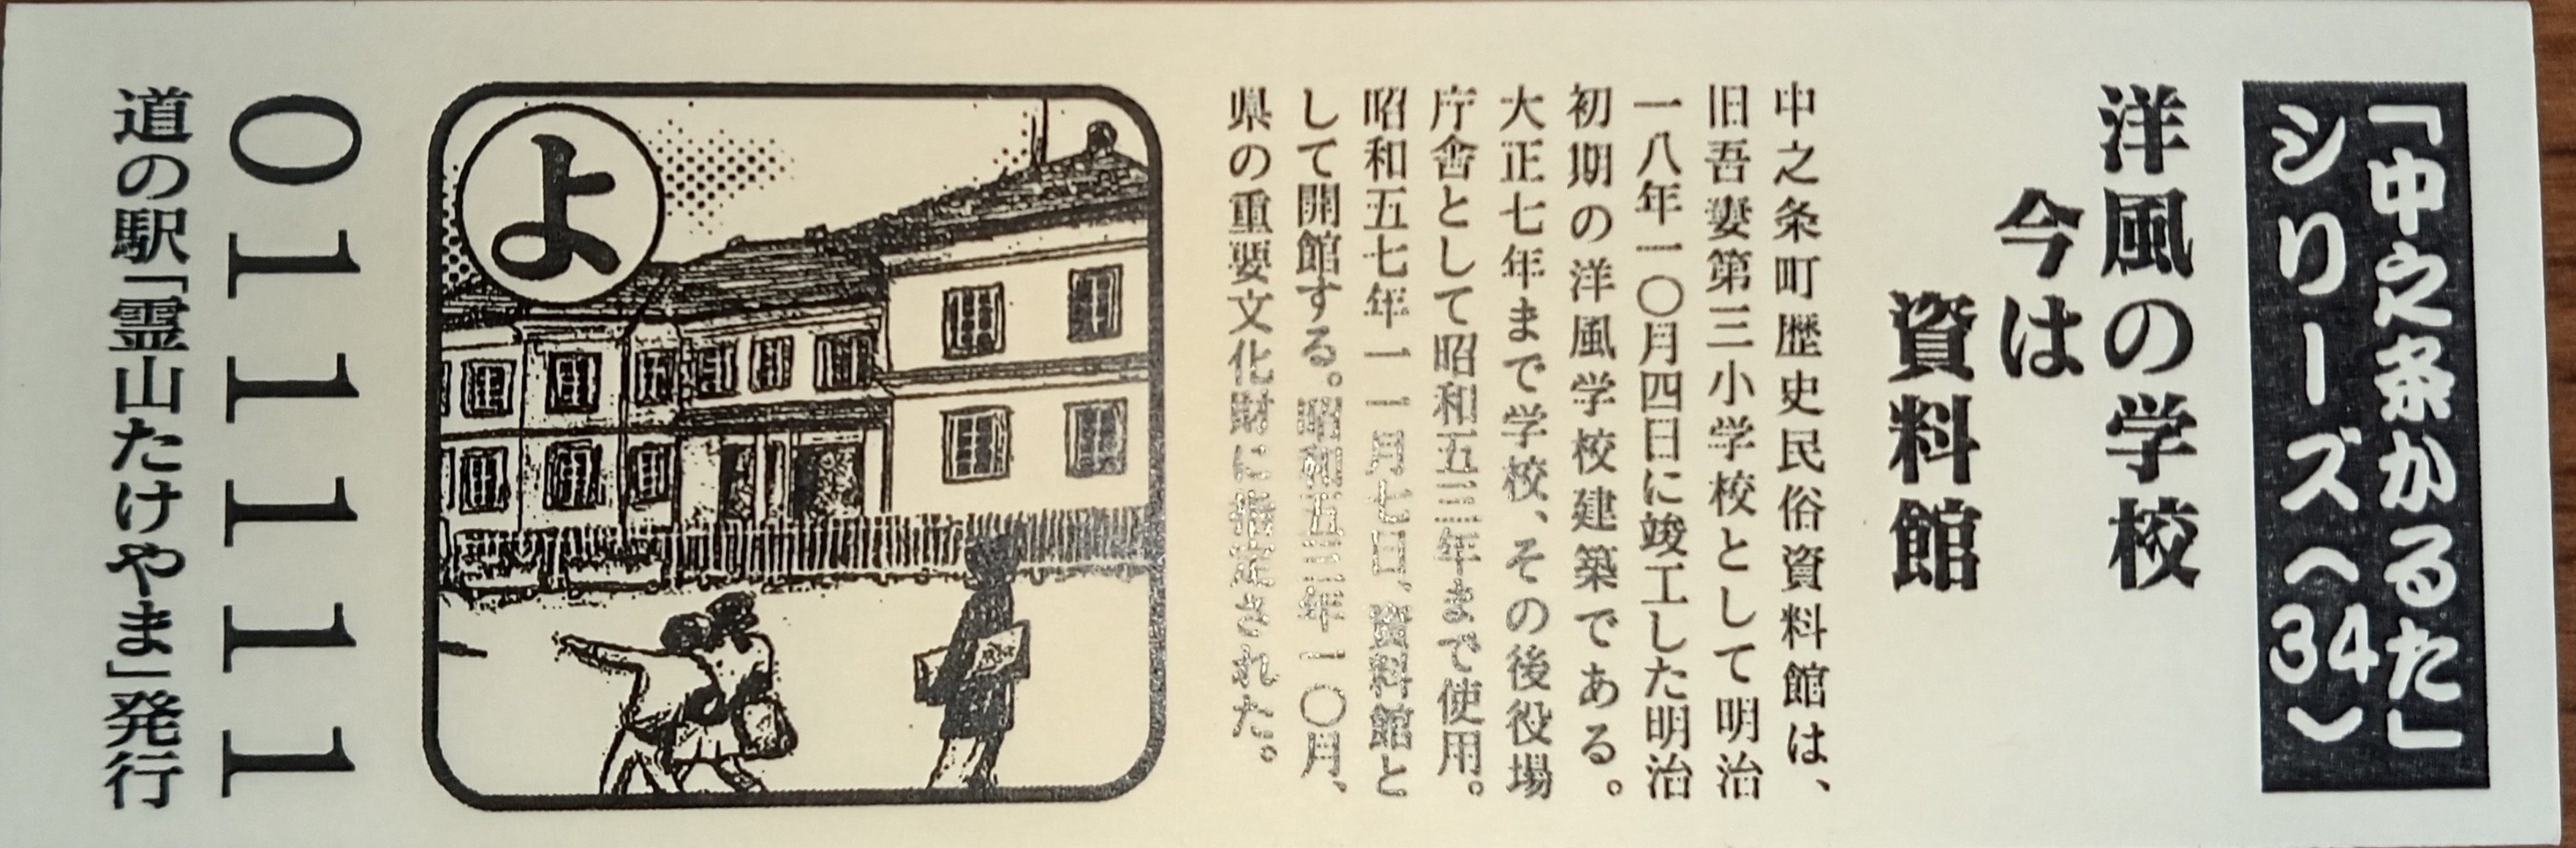 「中之条かるた」
シリーズ〈34〉
洋風の学校
今は
資料館
中之条町歴史民俗資料館は、
旧吾妻第三小学校として明治
一八年一〇月四日に竣工した明治
初期の洋風学校建築である。
大正七年まで学校、その後役場
庁舎として昭和五三年まで使用。
昭和五七年一一月七日、資料館と
して開館する。昭和五三年一〇月、
県の重要文化財に指定された。
よ
011111
道の駅「霊山たけやま」発行